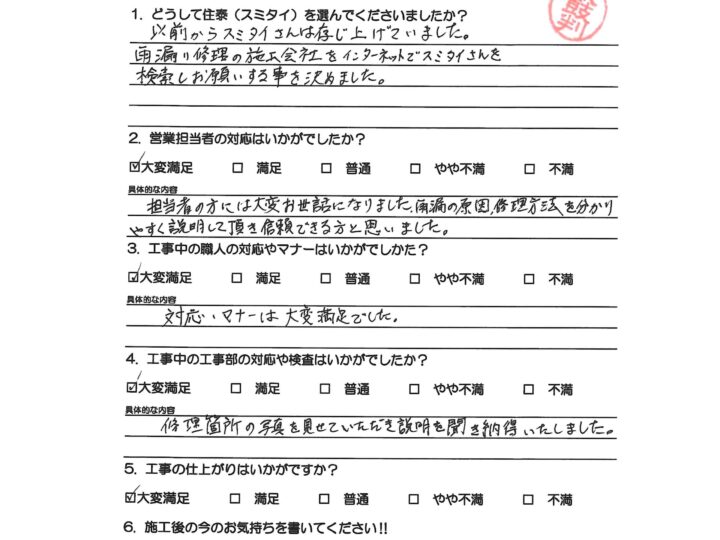 1. どうして住泰（スミタイ）を選んでくださいましたか？
以前からスミタイさんは存じ上げていました。
雨漏り修理の施工会社をインターネットでスミタイさんを
検索しお願いする事を決めました。
2. 営業担当者の対応はいかがでしたか？
☑大変満足 □ 満足 □ 普通 □ やや不満 □ 不満
具体的な内容
担当者の方には大変お世話になりました。雨漏の原因、修理方法を分かり
やすく説明して頂き信頼できる方と思いました。
3. 工事中の職人の対応やマナーはいかがでしかた？
☑大変満足 □ 満足 □ 普通 □ やや不満 □ 不満
具体的な内容
対応、マナーは大変満足でした。
4. 工事中の工事部の対応や検査はいかがでしたか？
☑大変満足 □ 満足 □ 普通 □ やや不満 □ 不満
具体的な内容
修理箇所の写真を見せていただき説明を聞き納得いたしました。
5. 工事の仕上がりはいかがですか？
☑大変満足 □ 満足 □ 普通 □ やや不満 □ 不満
6. 施工後の今のお気持ちを書いてください!!